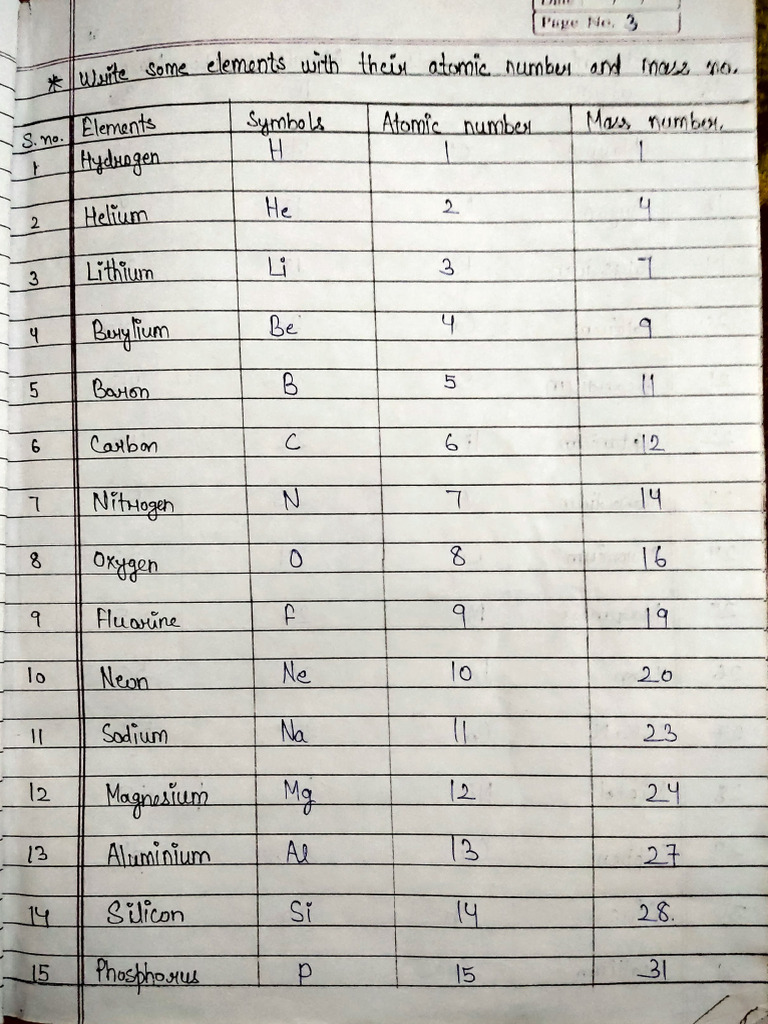 Page No. 3
* Write some elements with their atomic number and mass no.
S. no. Elements Symbols Atomic number Mass number.
1 Hydrogen H 1 1
2 Helium He 2 4
3 Lithium Li 3 7
4 Berylium Be 4 9
5 Baron B 5 11
6 Carbon C 6 12
7 Nitrogen N 7 14
8 Oxygen O 8 16
9 Fluorine F 9 19
10 Neon Ne 10 20
11 Sodium Na 11 23
12 Magnesium Mg 12 24
13 Aluminium Al 13 27
14 Silicon Si 14 28.
15 Phosphorus P 15 31